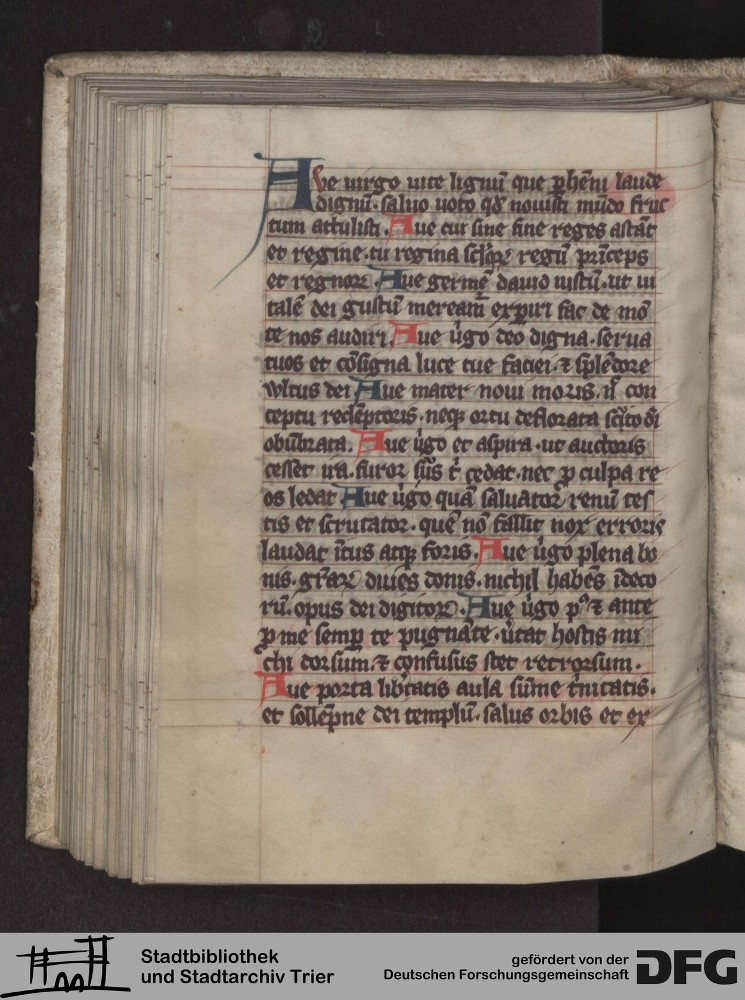 Ave uirgo uite lignū que ꝑhēni laude
dignū. saluo uoto qđ nouisti mūdo fruc
tum attulisti. Aue cui sine fine reges astāt
et regine. tu regina regū prīceps
et regnoꝝ. Aue germē dauid iustū. ut ui
talē dei gustū meream̄ exꝑiri fac de mō
te nos audiri. Aue ůgo deo digna. serua
tuos et cōsigna luce tue faciei. ⁊ splēdore
wltus dei Aue mater noui moris. ī con
ceptu redēptoris. neqꝫ ortu deflorata
obūbrata. Aue ůgo et aspira. ut auctoris
cesset ira. furor cedat. nec ꝓ culpa re
os ledat Aue ůgo quā saluator renū tes
tis et scrutator. quē nō fallit nox erroris
laudat ītus atqꝫ foris. Aue ůgo plena bo
nis. gr̄aꝝ diuies donis. nichil habēs īdeco
rū. opus dei digitoꝝ. Aue ůgo pꝰ ⁊ ante
ꝓ me semꝑ te pugnāte. ůtat hostis mi
chi dorsum. ⁊ confusus stet retrorsum.
Aue porta lib̄tatis aula sūme t̓nitatis.
et sollēpne dei templū. salus orbis et ex
Stadtbibliothek
und Stadtarchiv Trier
gefördert von der
Deutschen Forschungsgemeinschaft
DFG